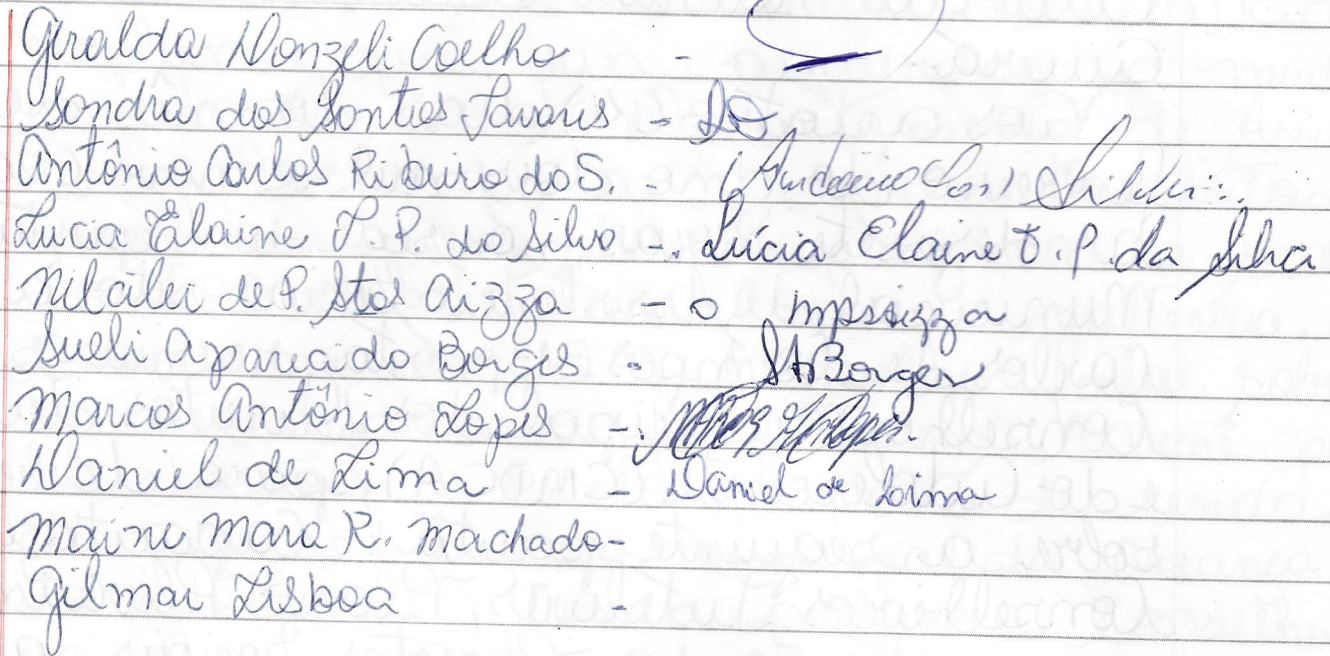 Giralda Donzeli Coelho -
Sandra dos Santos Tavares -
Antônio Carlos Ribeiro da S. -
Lucia Elaine T. P. da Silva - Lúcia Elaine T. P. da Silva
de P. Stos Aizza - mpsaizza
Sueli Aparecida Borges - SABorges
Marcos Antônio Lopes -
Daniel de Lima - Daniel de Lima
Maine Mara R. Machado -
Gilmar Lisboa -